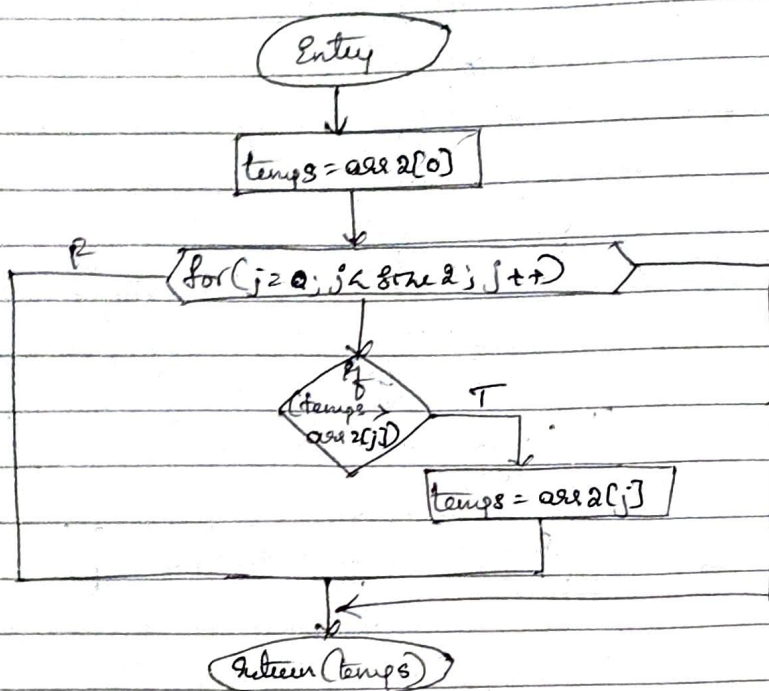 Entry
temps = arr2[0]
F
for(j=0; j< size2; j++)
if
(temps >
arr2[j])
T
temps = arr2[j]
return(temps)